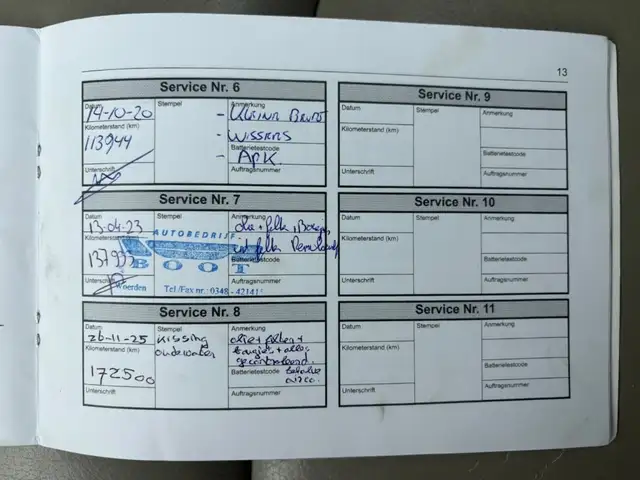 13
Service Nr. 6
Datum
14-10-20
Stempel
Anmerkung
- Kleine Beurt
Kilometerstand (km)
113944
- Wissers
Batterietestcode
- APK.
Unterschrift
Auftragsnummer
Service Nr. 7
Datum
13-04-23
Stempel
Anmerkung
olie + filter,
Kilometerstand
137933
AUTOBEDRIJF
BOOT
Woerden
Tel/Fax nr.: 0348 - 42141
Batterietestcode
Unterschrift
Auftragsnummer
Service Nr. 8
Datum
26-11-25
Stempel
Kissing
oudewater
Anmerkung
olie + filter +
+ alles
gecontroleerd.
Kilometerstand (km)
172500
Batterietestcode
airco.
Unterschrift
Auftragsnummer
Service Nr. 9
Datum
Stempel
Anmerkung
Kilometerstand (km)
Batterietestcode
Unterschrift
Auftragsnummer
Service Nr. 10
Datum
Stempel
Anmerkung
Kilometerstand (km)
Batterietestcode
Unterschrift
Auftragsnummer
Service Nr. 11
Datum
Stempel
Anmerkung
Kilometerstand (km)
Batterietestcode
Unterschrift
Auftragsnummer